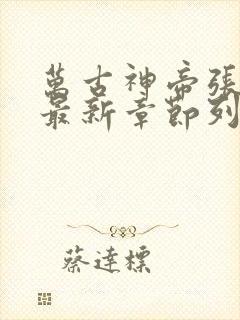 萬古神帝張
最新章節列
蔡達標